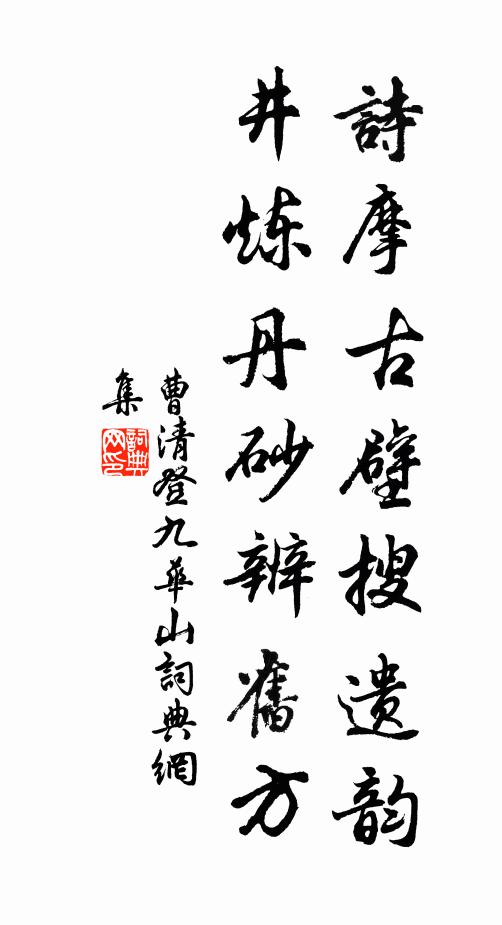 詩摩古壁搜遗韵
井炼丹砂辨舊方
曹清登九華山詞典網
集
詞典网印